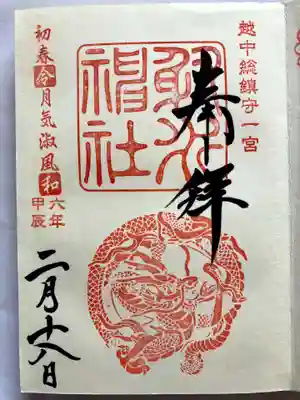 越中総鎮守一宮
奉拝
射水
神社
初春令月気淑風和六年
甲辰
二月十八日